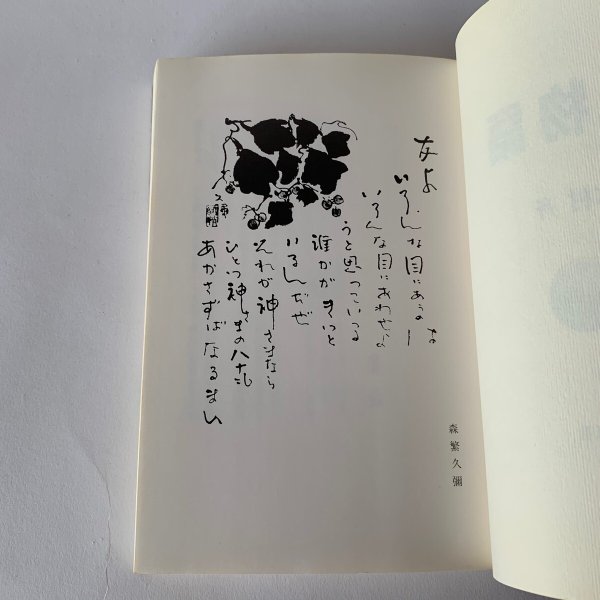 なよ
いろんな目にあうなー
いろんな目にあわせよ
うと思っている
誰かがきっと
いるんだぜ
それが神さまなら
ひとつ神さまのハナは
あかさずばなるまい
森繁久彌